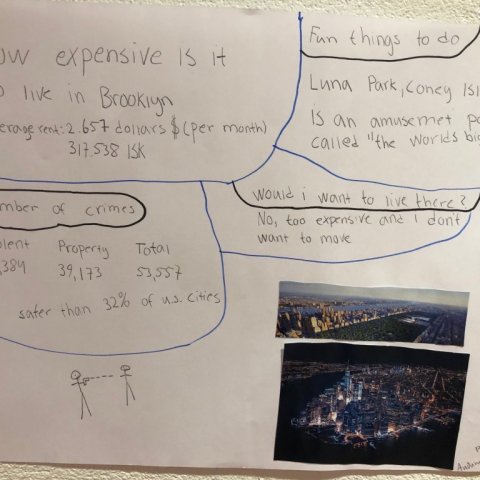 ow expensive is it
o live in Brooklyn
verage rent: 2.657 dollars $ (per month)
317.538 ISK
Fun things to do
Luna Park, Coney Isl
is an amusemet pa
called "the worlds big
would i want to live there?
No, too expensive and I don't
want to move
mber of crimes
olent Property Total
,384 39,173 53,557
safer than 32% of u.s. cities